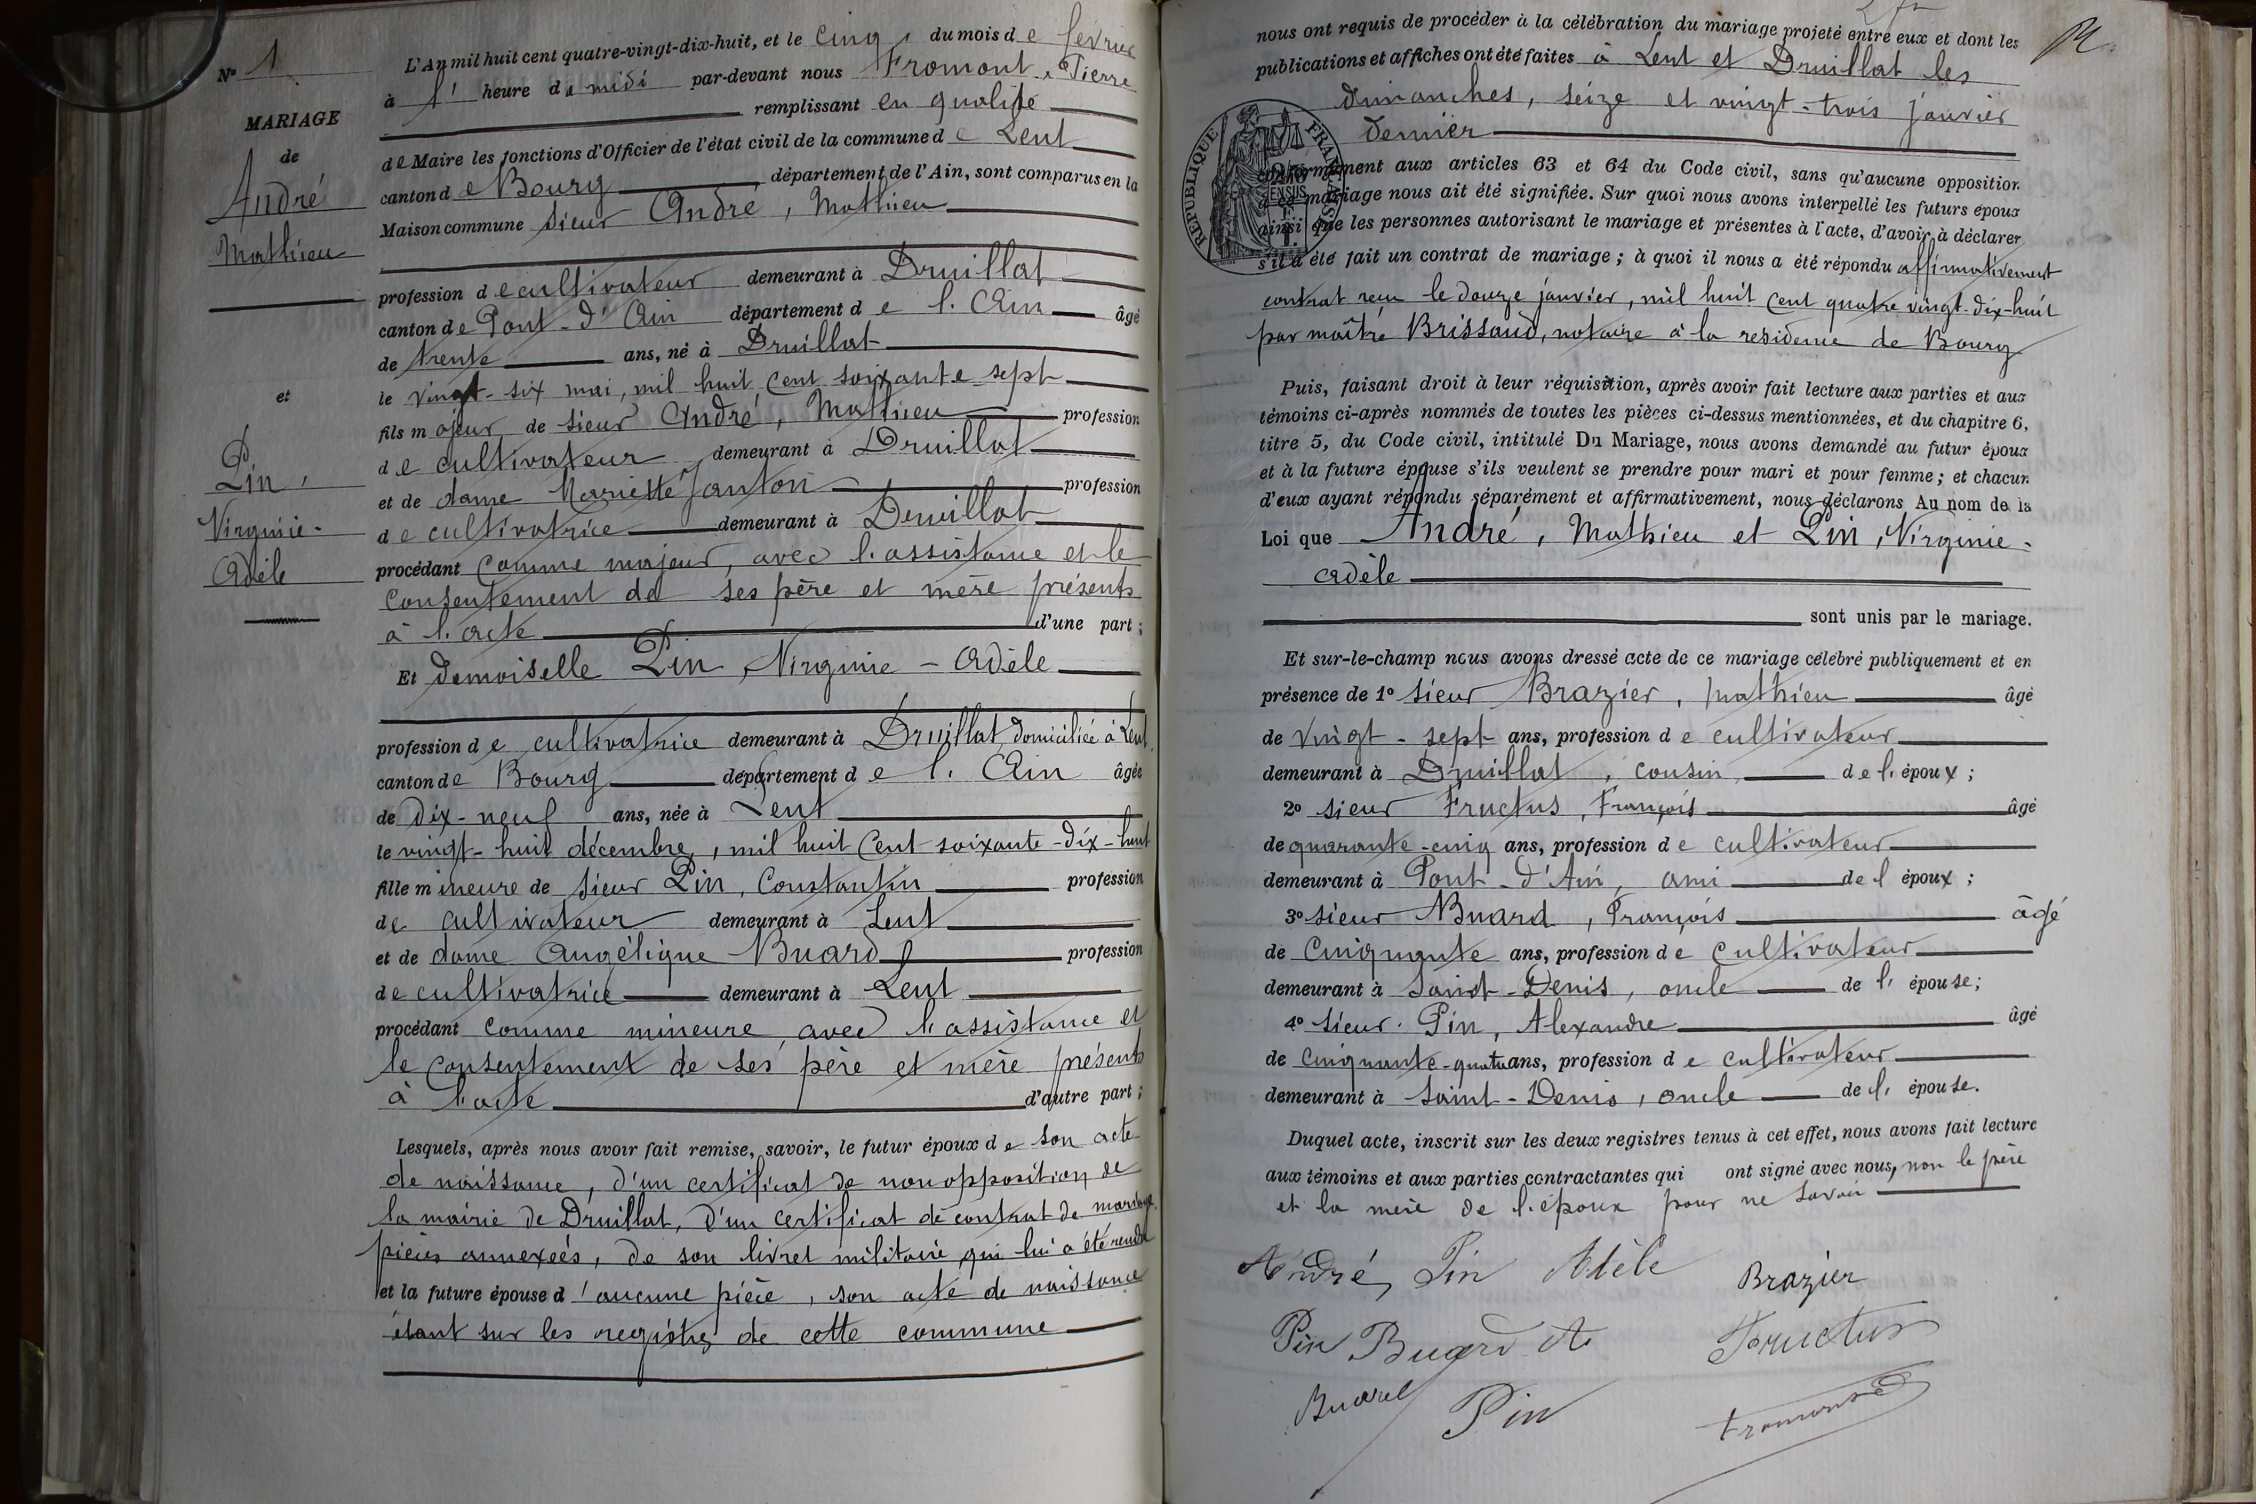 N° 1
MARIAGE
de
André
Mathieu
et
Pin,
Virginie-
Adèle
L'An mil huit cent quatre-vingt-dix-huit, et le cinq, du mois de février
à 1' heure du midi par-devant nous Fromont, Pierre
remplissant en qualité
de Maire les fonctions d'Officier de l'état civil de la commune de Lent
canton de Bourg département de l'Ain, sont comparus en la
Maison commune sieur André, Mathieu
profession de cultivateur demeurant à Druillat
canton de Pont-d'Ain département de l'Ain âgé
de trente ans, né à Druillat
le vingt-six mai, mil huit cent soixante sept
fils majeur de sieur André, Mathieu profession
de cultivateur demeurant à Druillat
et de dame Mariette Janton profession
de cultivatrice demeurant à Druillat
procédant comme majeur, avec l'assistance et le
consentement de ses père et mère présents
à l'acte d'une part;
Et demoiselle Pin, Virginie-Adèle
profession de cultivatrice demeurant à Druillat domiciliée à Lent
canton de Bourg département de l'Ain âgée
de dix-neuf ans, née à Lent
le vingt-huit décembre, mil huit cent soixante-dix-huit
fille mineure de sieur Pin, Constantin profession
de cultivateur demeurant à Lent
et de dame Angélique Buard profession
de cultivatrice demeurant à Lent
procédant comme mineure, avec l'assistance et
le consentement de ses père et mère présents
à l'acte d'autre part;
Lesquels, après nous avoir fait remise, savoir, le futur époux de son acte
de naissance, d'un certificat de non opposition de
la mairie de Druillat, d'un certificat de contrat de mariage
pièces annexées, de son livret militaire qui lui a été rendu
et la future épouse d'aucune pièce, son acte de naissance
étant sur les registres de cette commune
nous ont requis de procéder à la célébration du mariage projeté entre eux et dont les
publications et affiches ont été faites à Lent et Druillat les
dimanches, seize et vingt-trois janvier
dernier
RÉPUBLIQUE FRANÇAISE
conformément aux articles 63 et 64 du Code civil, sans qu'aucune opposition
à ce mariage nous ait été signifiée. Sur quoi nous avons interpellé les futurs époux
ainsi que les personnes autorisant le mariage et présentes à l'acte, d'avoir à déclarer
s'il a été fait un contrat de mariage; à quoi il nous a été répondu affirmativement
contrat reçu le douze janvier, mil huit cent quatre vingt-dix-huit
par maître Brissaud, notaire à la residence de Bourg
Puis, faisant droit à leur réquisition, après avoir fait lecture aux parties et aux
témoins ci-après nommés de toutes les pièces ci-dessus mentionnées, et du chapitre 6,
titre 5, du Code civil, intitulé Du Mariage, nous avons demandé au futur époux
et à la future épouse s'ils veulent se prendre pour mari et pour femme; et chacun
d'eux ayant répondu séparément et affirmativement, nous déclarons Au nom de la
Loi que André, Mathieu et Pin, Virginie-
Adèle
sont unis par le mariage.
Et sur-le-champ nous avons dressé acte de ce mariage célébré publiquement et en
présence de 1° sieur Brazier, Mathieu âgé
de vingt-sept ans, profession de cultivateur
demeurant à Druillat, cousin de l'époux;
2° sieur Fructus, François âgé
de quarante-cinq ans, profession de cultivateur
demeurant à Pont-d'Ain, ami de l'époux;
3° sieur Buard, François âgé
de cinquante ans, profession de cultivateur
demeurant à Saint-Denis, oncle de l'épouse;
4° sieur Pin, Alexandre âgé
de cinquante-quatre ans, profession de cultivateur
demeurant à Saint-Denis, oncle de l'épouse.
Duquel acte, inscrit sur les deux registres tenus à cet effet, nous avons fait lecture
aux témoins et aux parties contractantes qui ont signé avec nous, non le père
et la mère de l'époux pour ne savoir
André Pin Adèle Brazier
Pin Buard A Fructus
Buard Pin Fromont